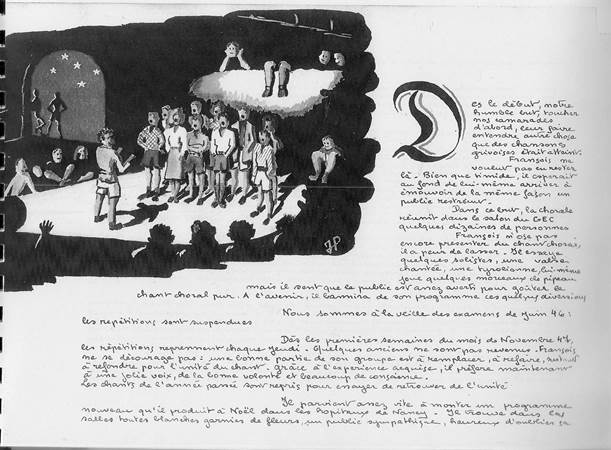 Dès le début, notre
humble but, toucher
nos camarades
d'abord, leur faire
entendre autre chose
que des chansons
grivoises était atteint.
François ne
voulut pas en rester
là. Bien que timide, il espérait
au fond de lui-même arriver à
émouvoir de la même façon un
public restreint.
Dans ce but, la chorale
réunit dans le salon du GEC
quelques dizaines de personnes
François n'ose pas
encore présenter du chant choral,
il a peur de lasser. Il essaye
quelques solistes, une valse
chantée, une tyrolienne, lui-même
joue quelques morceaux de pipeau
mais il sent que le public est assez averti pour goûter le
chant choral pur. A l'avenir, il bannira de son programme ces quelques diversions
Nous sommes à la veille des examens de Juin 46:
les répétitions sont suspendues
Dès les premières semaines du mois de Novembre
les répétitions reprennent chaque jeudi. Quelques anciens ne sont pas revenus. François
ne se décourage pas: une bonne partie de son groupe est à remplacer, à refaire, surtout
à refondre pour l'unité du chant. Grâce à l'expérience acquise, il préfère maintenant
à une jolie voix, de la bonne volonté et beaucoup de conscience.
Les chants de l'année passée sont repris pour essayer de retrouver de l'unité
Il parvient assez vite à monter un programme
nouveau qu'il produit à Noël dans les hôpitaux de Nancy. Il trouve dans les
salles toutes blanches garnies de fleurs, un public sympathique, heureux d'oublier sa
JP